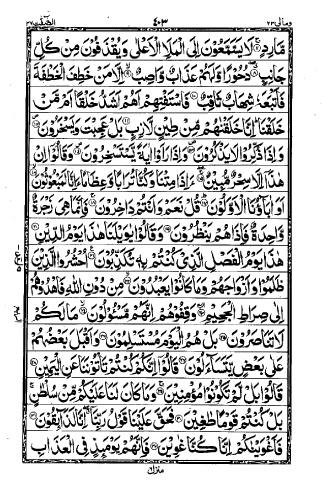 ومالى ٢٣ ٤٠٣ الصّٰفّٰت ٣٧
مَّارِدٍ ۞ لَا يَسَّمَّعُوْنَ اِلَى الْمَلَاِ الْاَعْلٰى وَيُقْذَفُوْنَ مِنْ كُلِّ
جَانِبٍ ۞ دُحُوْرًا وَّلَهُمْ عَذَابٌ وَّاصِبٌ ۞ اِلَّا مَنْ خَطِفَ الْخَطْفَةَ
فَاَتْبَعَهٗ شِهَابٌ ثَاقِبٌ ۞ فَاسْتَفْتِهِمْ اَهُمْ اَشَدُّ خَلْقًا اَمْ مَّنْ
خَلَقْنَا ؕ اِنَّا خَلَقْنٰهُمْ مِّنْ طِيْنٍ لَّازِبٍ ۞ بَلْ عَجِبْتَ وَيَسْخَرُوْنَ ۞
وَاِذَا ذُكِّرُوْا لَا يَذْكُرُوْنَ ۞ وَاِذَا رَاَوْا اٰيَةً يَّسْتَسْخِرُوْنَ ۞ وَقَالُوْٓا اِنْ
هٰذَآ اِلَّا سِحْرٌ مُّبِيْنٌ ۞ ءَاِذَا مِتْنَا وَكُنَّا تُرَابًا وَّعِظَامًا ءَاِنَّا لَمَبْعُوْثُوْنَ ۞
اَوَاٰبَآؤُنَا الْاَوَّلُوْنَ ۞ قُلْ نَعَمْ وَاَنْتُمْ دَاخِرُوْنَ ۞ فَاِنَّمَا هِيَ زَجْرَةٌ
وَّاحِدَةٌ فَاِذَا هُمْ يَنْظُرُوْنَ ۞ وَقَالُوْا يٰوَيْلَنَا هٰذَا يَوْمُ الدِّيْنِ ۞
هٰذَا يَوْمُ الْفَصْلِ الَّذِيْ كُنْتُمْ بِهٖ تُكَذِّبُوْنَ ۞ اُحْشُرُوا الَّذِيْنَ
ظَلَمُوْا وَاَزْوَاجَهُمْ وَمَا كَانُوْا يَعْبُدُوْنَ ۞ مِنْ دُوْنِ اللّٰهِ فَاهْدُوْهُمْ
اِلٰى صِرَاطِ الْجَحِيْمِ ۞ وَقِفُوْهُمْ اِنَّهُمْ مَّسْئُوْلُوْنَ ۞ مَا لَكُمْ
لَا تَنَاصَرُوْنَ ۞ بَلْ هُمُ الْيَوْمَ مُسْتَسْلِمُوْنَ ۞ وَاَقْبَلَ بَعْضُهُمْ
عَلٰى بَعْضٍ يَّتَسَآءَلُوْنَ ۞ قَالُوْٓا اِنَّكُمْ كُنْتُمْ تَاْتُوْنَنَا عَنِ الْيَمِيْنِ ۞
قَالُوْا بَلْ لَّمْ تَكُوْنُوْا مُؤْمِنِيْنَ ۞ وَمَا كَانَ لَنَا عَلَيْكُمْ مِّنْ سُلْطٰنٍ ۚ
بَلْ كُنْتُمْ قَوْمًا طٰغِيْنَ ۞ فَحَقَّ عَلَيْنَا قَوْلُ رَبِّنَآ ۖ اِنَّا لَذَآئِقُوْنَ ۞
فَاَغْوَيْنٰكُمْ اِنَّا كُنَّا غٰوِيْنَ ۞ فَاِنَّهُمْ يَوْمَئِذٍ فِي الْعَذَابِ